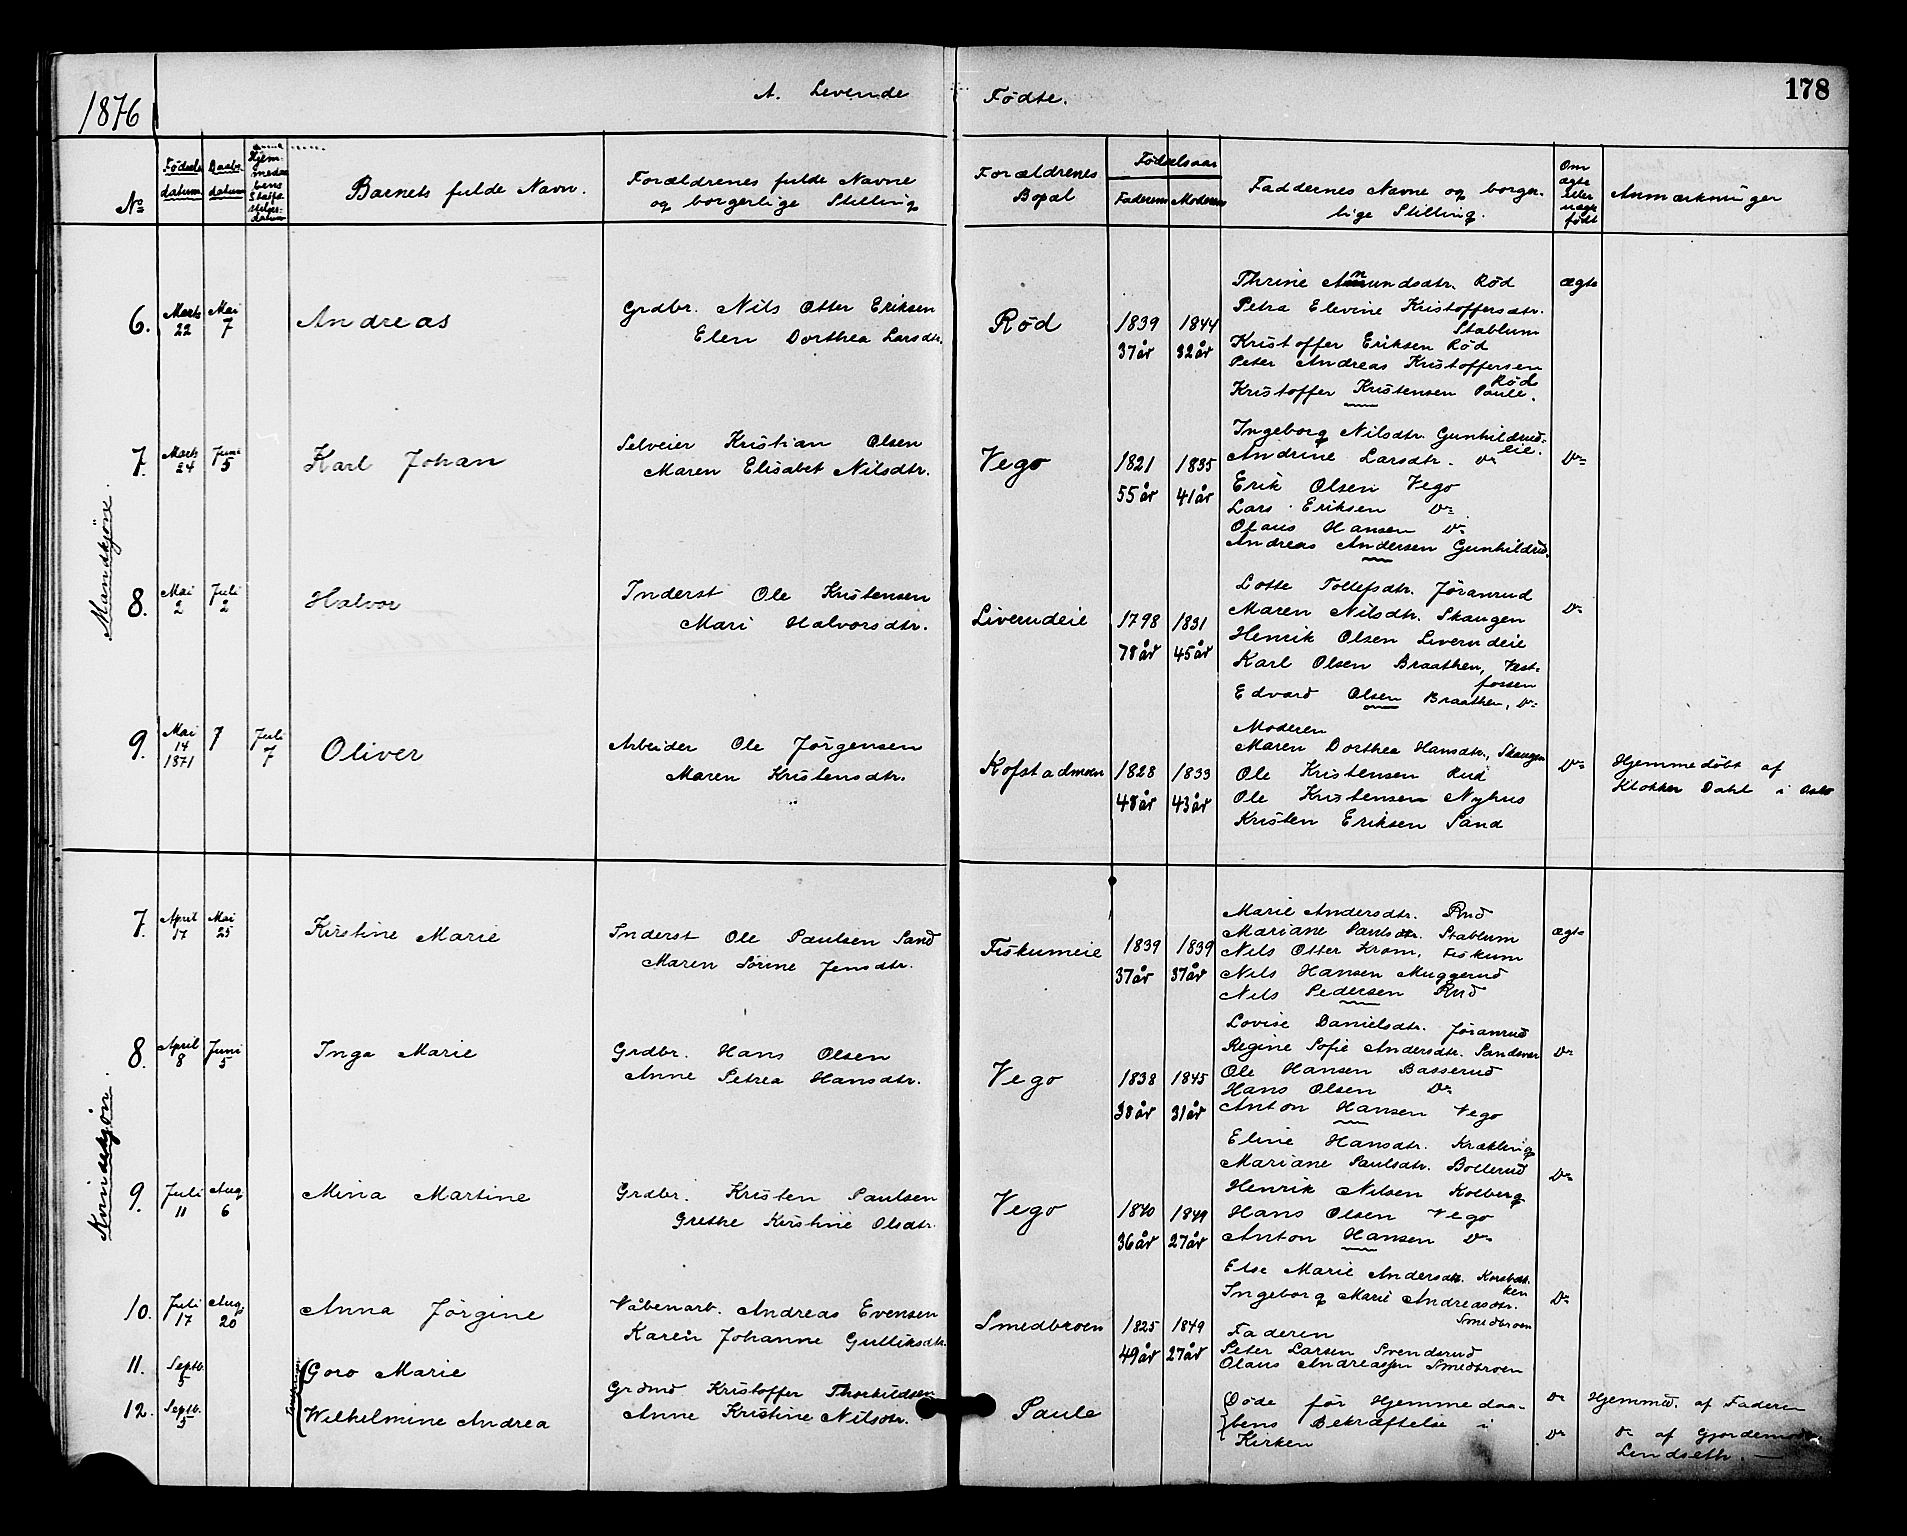 1876
A. Levende Fødte.
178
No
Fødsels datum
Daabs datum
Hjemmedaabens Stadfæstelsesdatum
Barnets fulde Navn.
Forældrenes fulde Navne og borgerlige Stilling
Forældrenes Bopæl
Fødselsaar
Faderens Moderens
Faddernes Navne og borgerlige Stilling.
Om ægte eller uægte født
Anmærkninger
Mandskjøn.
6. Marts 22 Mai 7 Andreas
Grdbr. Nils Otter Eriksen
Elen Dorthea Larsdtr.
Rød
1839 1844
37 år 32 år
Thrine Amundsdtr. Rød
Petra Elevine Kristoffersdtr.
Stablum
Kristoffer Eriksen Rød
Peter Andreas Kristoffersen
Rød
Kristoffer Kristensen Paule.
ægte
7. Marts 24 Juni 5 Karl Johan
Selveier Kristian Olsen
Maren Elisabet Nilsdtr.
Vego
1821 1835
55 år 41 år
Ingeborg Nilsdtr. Gunhildrud-
eie.
Andrine Larsdtr. Do
Erik Olsen Vego
Lars Eriksen Do
Olaus Hansen Do
Andreas Andersen Gunhildrud.
Do
8. Mai 2 Juli 2 Halvor
Inderst Ole Kristensen
Mari Halvorsdtr.
Liverudeie
1798 1831
78 år 45 år
Lotte Tollefsdtr. Jøranrud
Maren Nilsdtr. Skaugen
Henrik Olsen Liverudeie
Karl Olsen Braathen, Vest-
fossen
Edvard Olsen Braathen, Do
Do
9. Mai 14 1871 7 Juli 7 Oliver
Arbeider Ole Jørgensen
Maren Kristensdtr.
Kofstadmoen
1828 1833
48 år 43 år
Moderen
Maren Dorthea Hansdtr., Skaugen
Ole Kristensen Rud
Ole Kristensen Nyhus
Kristen Eriksen Sand
Do
Hjemmedøbt af
Klokker Dahl i Oslo
Kvindekjøn.
7. April 17 Mai 25 Kirstine Marie
Inderst Ole Paulsen Sand
Maren Sørine Jensdtr.
Fiskumeie
1839 1839
37 år 37 år
Marie Andersdtr. Rud
Mariane Paulsdtr. Stablum
Nils Otter Krom, Fiskum
Nils Hansen Muggerud
Nils Pedersen Rud
ægte
8. April 8 Juni 5 Inga Marie
Grdbr. Hans Olsen
Anne Petrea Hansdtr.
Vego
1838 1845
38 år 31 år
Lovise Danielsdtr. Jøranrud
Regine Sofie Andersdtr. Sandsvær
Ole Hansen Basserud
Hans Olsen Do
Anton Hansen Vego
Do
9. Juli 11 Aug 6 Mina Martine
Grdbr. Kristen Paulsen
Grethe Kirstine Olsdtr.
Vego
1840 1849
36 år 27 år
Eline Hansdtr. Krækling
Mariane Paulsdtr. Bollerud
Henrik Nilsen Kolberg
Hans Olsen Vego
Anton Hansen Do
Do
10. Juli 17 Aug. 20 Anna Jørgine
Våbenarb. Andreas Evensen
Karen Johanne Gulliksdtr.
Smedbroen
1825 1849
49 år 27 år
Else Marie Andersdtr. Korsbak-
ken
Ingeborg Marie Andreasdtr.
Smedbroen
Faderen
Peter Larsen Svendsrud
Olaus Andreassen Smedbroen
Do
11. Septb. 5 Goro Marie
12. Septb. 5 Wilhelmine Andrea
Grdmd Kristoffer Thorkildsen
Anne Kristine Nilsdtr.
Paule
Døde før Hjemmedaa-
bens Bekræftelse i
Kirken
Do
Do
Hjemmd. af Faderen
Do af Gjordemoder
Lindseth.